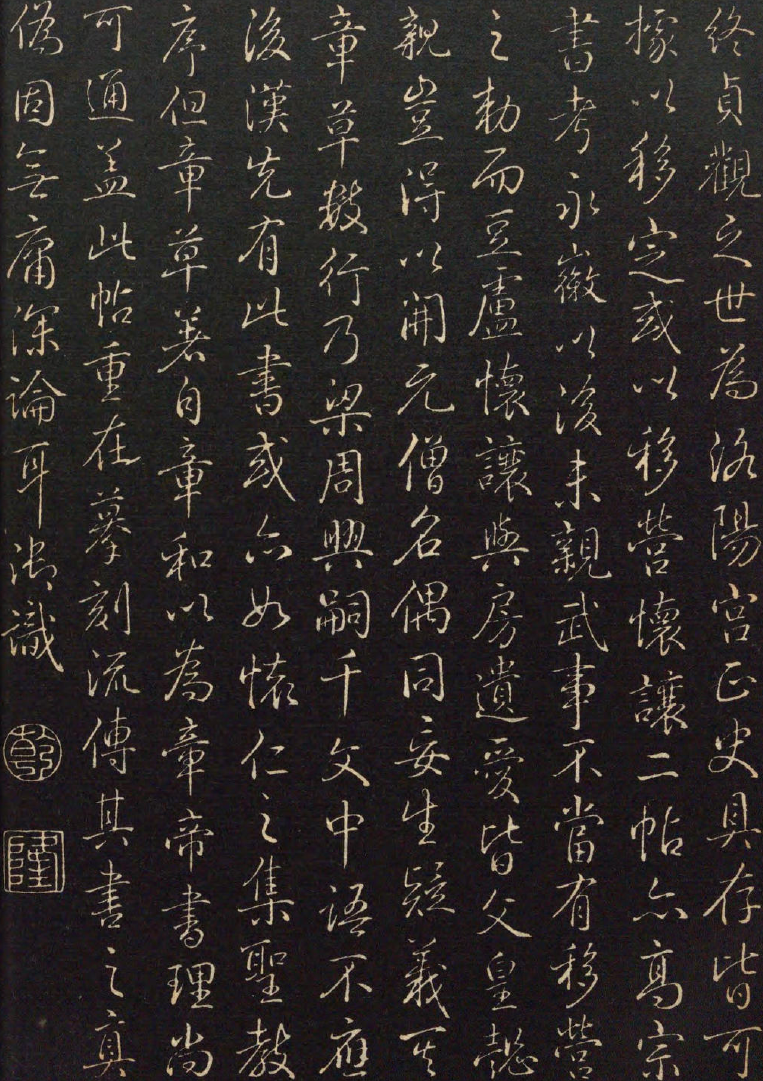 終貞觀之世為洛陽宮正史具存皆可
據以移定或以移營懷讓二帖亦髙宗
書考永徽以後未親武事不當有移營
之勅而豆盧懷讓與房遺愛皆父皇懿
親豈得以開元僧名偶同妄生疑義至
章草數行乃梁周興嗣千文中語不應
後漢先有此書或亦如懷仁之集聖教
序但章草著自章和以為章帝書理尚
可通盖此帖重在摹刻流傳其書之真
偽固無庸深論耳御識
乾
隆